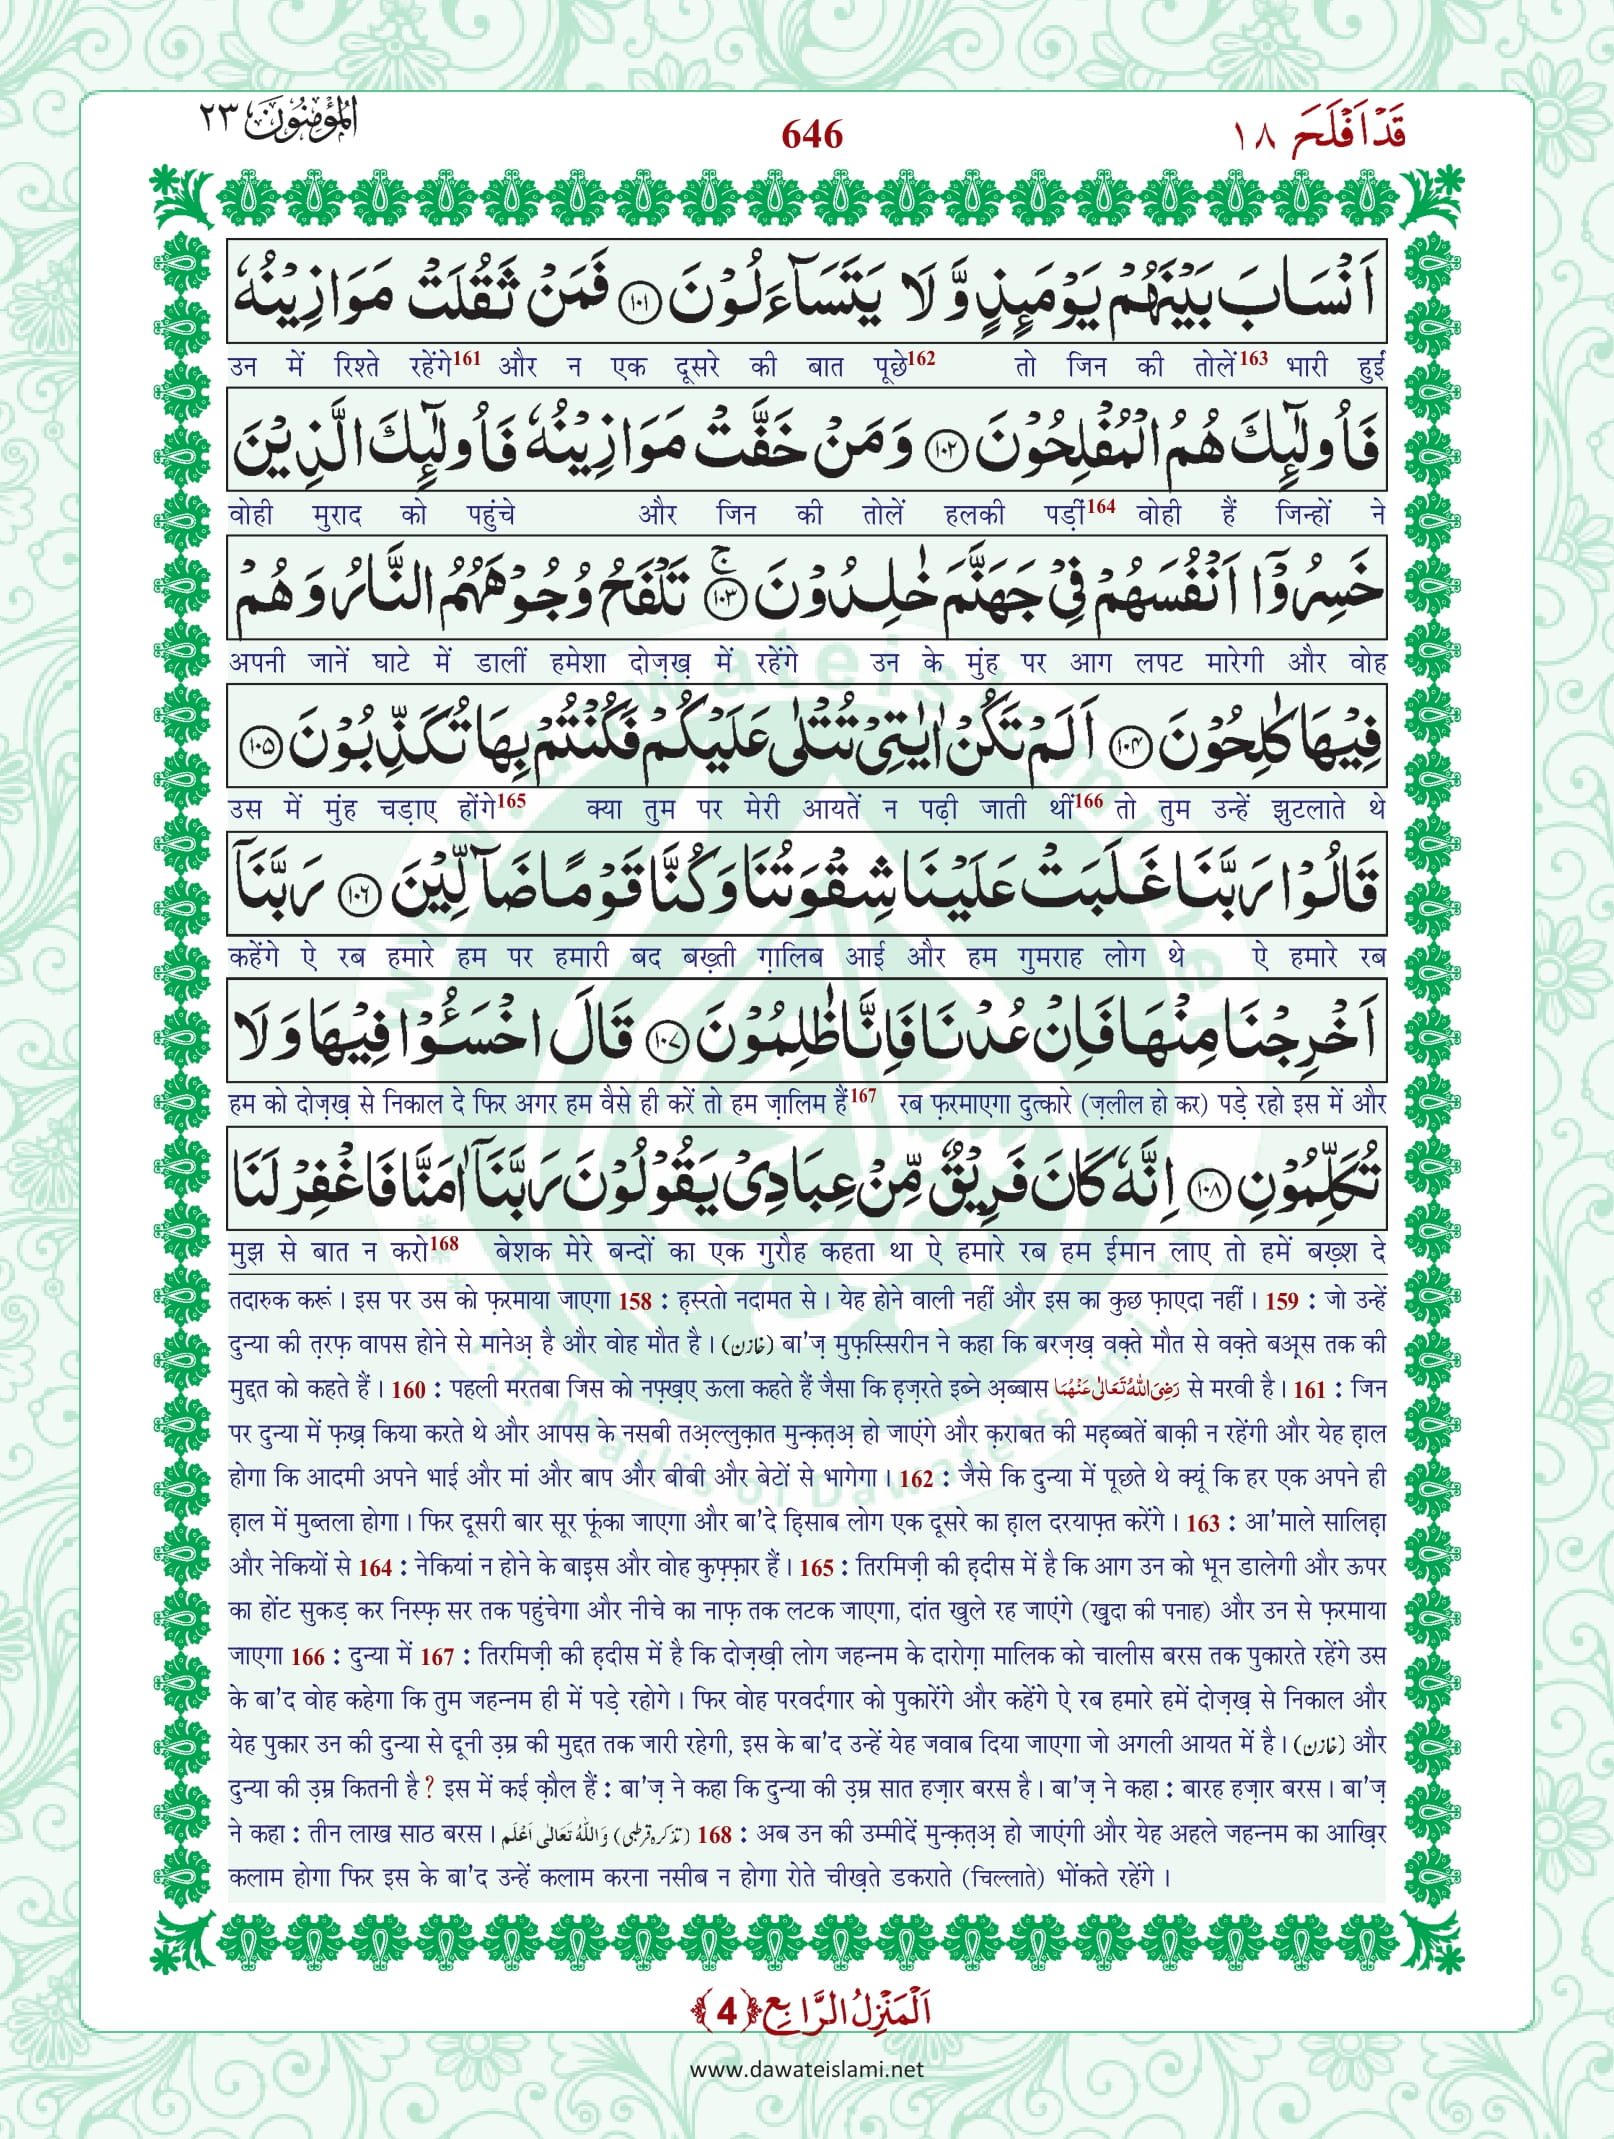 قَدْ اَفْلَحَ ١٨
646
اَلْمُؤْمِنُوْنَ ٢٣
اَنْسَابَ بَیْنَهُمْ یَوْمَىٕذٍ وَّ لَا یَتَسَآءَلُوْنَ ۝۱۰۱ فَمَنْ ثَقُلَتْ مَوَازِیْنُهٗ
उन में रिश्ते रहेंगे161 और न एक दूसरे की बात पूछे162 तो जिन की तोलें163 भारी हुईं
فَاُولٰٓىٕكَ هُمُ الْمُفْلِحُوْنَ ۝۱۰۲ وَ مَنْ خَفَّتْ مَوَازِیْنُهٗ فَاُولٰٓىٕكَ الَّذِیْنَ
वोही मुराद को पहुंचे और जिन की तोलें हलकी पड़ीं164 वोही हैं जिन्हों ने
خَسِرُوْۤا اَنْفُسَهُمْ فِیْ جَهَنَّمَ خٰلِدُوْنَ ۝۱۰۳ۚ تَلْفَحُ وُجُوْهَهُمُ النَّارُ وَ هُمْ
अपनी जानें घाटे में डालीं हमेशा दोज़ख़ में रहेंगे उन के मुंह पर आग लपट मारेगी और वोह
فِیْهَا كٰلِحُوْنَ ۝۱۰۴ اَلَمْ تَكُنْ اٰیٰتِیْ تُتْلٰى عَلَیْكُمْ فَكُنْتُمْ بِهَا تُكَذِّبُوْنَ ۝۱۰۵
उस में मुंह चड़ाए होंगे165 क्या तुम पर मेरी आयतें न पढ़ी जाती थीं166 तो तुम उन्हें झुटलाते थे
قَالُوْا رَبَّنَا غَلَبَتْ عَلَیْنَا شِقْوَتُنَا وَ كُنَّا قَوْمًا ضَآلِّیْنَ ۝۱۰۶ رَبَّنَاۤ
कहेंगे ऐ रब हमारे हम पर हमारी बद बख़्ती ग़ालिब आई और हम गुमराह लोग थे ऐ हमारे रब
اَخْرِجْنَا مِنْهَا فَاِنْ عُدْنَا فَاِنَّا ظٰلِمُوْنَ ۝۱۰۷ قَالَ اخْسَـُٔوْا فِیْهَا وَ لَا
हम को दोज़ख़ से निकाल दे फिर अगर हम वैसे ही करें तो हम ज़ालिम हैं167 रब फ़रमाएगा दुत्कारे (ज़लील हो कर) पड़े रहो इस में और
تُكَلِّمُوْنِ ۝۱۰۸ اِنَّهٗ كَانَ فَرِیْقٌ مِّنْ عِبَادِیْ یَقُوْلُوْنَ رَبَّنَاۤ اٰمَنَّا فَاغْفِرْ لَنَا
मुझ से बात न करो168 बेशक मेरे बन्दों का एक गुरौह कहता था ऐ हमारे रब हम ईमान लाए तो हमें बख़्श दे
तदारुक करूं। इस पर उस को फ़रमाया जाएगा 158 : ह़स्रतो नदामत से। येह होने वाली नहीं और इस का कुछ फ़ाएदा नहीं। 159 : जो उन्हें
दुन्या की त़रफ़ वापस होने से मानेअ़ है और वोह मौत है। (خازن) बा'ज़ मुफ़स्सिरीन ने कहा कि बरज़ख़ वक़्ते मौत से वक़्ते बअ़्स तक की
मुद्दत को कहते हैं। 160 : पहली मरतबा जिस को नफ़्ख़ए ऊला कहते हैं जैसा कि ह़ज़रते इब्ने अ़ब्बास رَضِیَ اللّٰهُ تَعَالٰی عَنْهُمَا से मरवी है। 161 : जिन
पर दुन्या में फ़ख़्र किया करते थे और आपस के नसबी तअ़ल्लुक़ात मुन्क़त़अ़ हो जाएंगे और क़राबत की मह़ब्बतें बाक़ी न रहेंगी और येह ह़ाल
होगा कि आदमी अपने भाई और मां और बाप और बीबी और बेटों से भागेगा। 162 : जैसे कि दुन्या में पूछते थे क्यूं कि हर एक अपने ही
ह़ाल में मुब्तला होगा। फिर दूसरी बार सूर फूंका जाएगा और बा'दे ह़िसाब लोग एक दूसरे का ह़ाल दरयाफ़्त करेंगे। 163 : आ'माले सालिह़ा
और नेकियों से 164 : नेकियां न होने के बाइस और वोह कुफ़्फ़ार हैं। 165 : तिरमिज़ी की ह़दीस में है कि आग उन को भून डालेगी और ऊपर
का होंट सुकड़ कर निस्फ़ सर तक पहुंचेगा और नीचे का नाफ़ तक लटक जाएगा, दांत खुले रह जाएंगे (ख़ुदा की पनाह) और उन से फ़रमाया
जाएगा 166 : दुन्या में 167 : तिरमिज़ी की ह़दीस में है कि दोज़ख़ी लोग जहन्नम के दारोग़ा मालिक को चालीस बरस तक पुकारते रहेंगे उस
के बा'द वोह कहेगा कि तुम जहन्नम ही में पड़े रहोगे। फिर वोह परवर्दगार को पुकारेंगे और कहेंगे ऐ रब हमारे हमें दोज़ख़ से निकाल और
येह पुकार उन की दुन्या से दूनी उ़म्र की मुद्दत तक जारी रहेगी, इस के बा'द उन्हें येह जवाब दिया जाएगा जो अगली आयत में है। (خازن) और
दुन्या की उ़म्र कितनी है? इस में कई क़ौल हैं : बा'ज़ ने कहा कि दुन्या की उ़म्र सात हज़ार बरस है। बा'ज़ ने कहा : बारह हज़ार बरस। बा'ज़
ने कहा : तीन लाख साठ बरस। (تذکرہ قرطبی) وَاللّٰهُ تَعَالٰی اَعْلَم 168 : अब उन की उम्मीदें मुन्क़त़अ़ हो जाएंगी और येह अहले जहन्नम का आख़िर
कलाम होगा फिर इस के बा'द उन्हें कलाम करना नसीब न होगा रोते चीख़ते डकराते (चिल्लाते) भोंकते रहेंगे।
اَلْمَنْزِلُ الرَّابِع ﴿4﴾
www.dawateislami.net